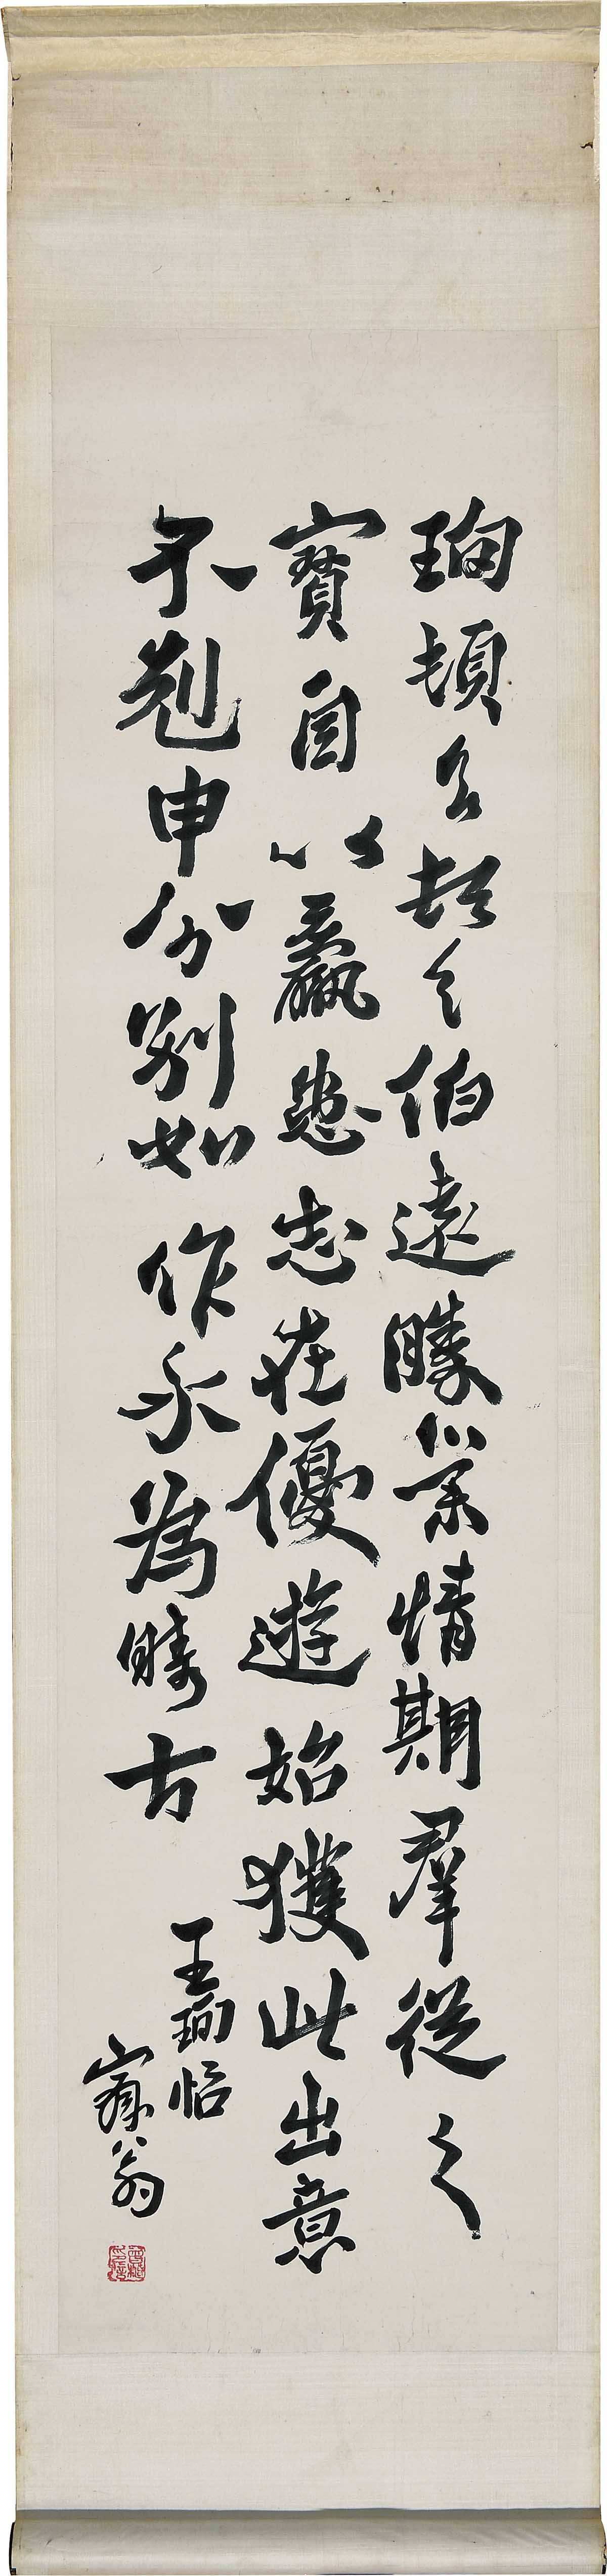 珣頓首頓首伯遠勝業情期羣從之
寶自以羸患志在優遊始獲此出意
不剋申分別如作永為疇古
王珣帖
寐翁